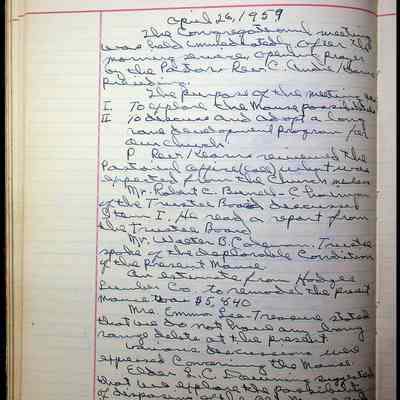 April 26, 1959
The Congregational meeting
was held immediately after the
morning service, opening prayer
by the Pastor Rev. C. Andre Kearns
presiding.
The purpose of the meeting
I. To explore the Manse possibilities
II to discuss and adopt a long
range development program for
our church.
P. Rev. Kearns reviewed the
Pastoral
expected of the Church
Mr. Robert C. Chairman
of the Trustee Board discussed
Item I. He read a report from
the Trustee Board
Mr. Walter B. Coleman. Trustee
spoke of the deplorable condition
of the present Manse.
An estimate from Hodges
Lumber Co. to remodel the present
Manse was $5,840
Mrs. Emma Lee-Treasure stated
that we do not have any long
range debts at the present
Various discussions were
expressed concerning the Manse.
Elder L. C. suggested
that we explore the possibility
of disposing of